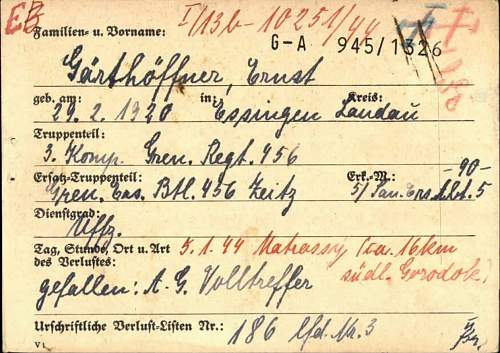 EB
I/13b-10251/44
Familien- u. Vorname:
G-A 945/1326
Gärthöffner, Ernst
geb. am: in: Kreis:
29.2.1920 Essingen Landau
Truppenteil:
3. Komp. Gren. Regt. 456
-90-
Ersatz-Truppenteil: Erk.-M.:
Gren. Ers. Btl. 456 Zeitz 5/San. Ers. Abt. 5
Dienstgrad:
Uffz.
Tag, Stunde, Ort u. Art 5.1.44 Matrassy ca. 16 km
des Verlustes: südl. Gorodok
gefallen: A.G. Volltreffer
Urschriftliche Verlust-Listen Nr.: 186 lfd. Nr. 3
V 1